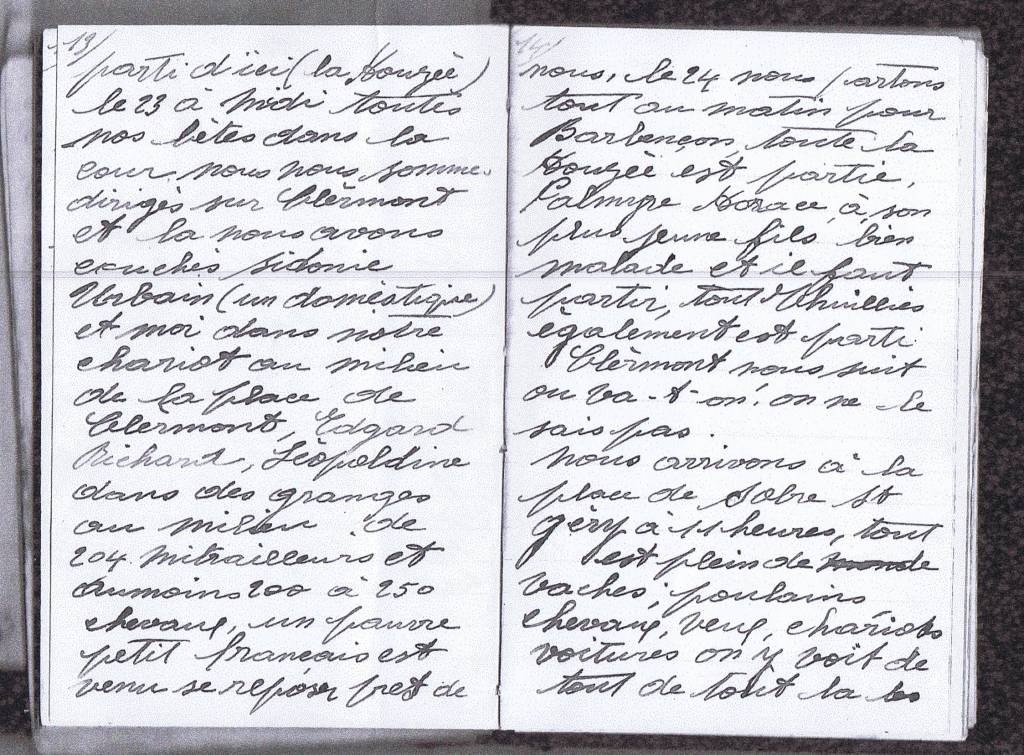 13/
parti d'ici (la Houzée)
le 23 à midi toutes
nos bêtes dans la
cour, nous nous somme
dirigés sur Clérmont
et la nous avons
couchés Sidonie
Urbain (un doméstique)
et moi dans notre
chariot au milieu
de la place de
Clermont, Edgard
Richard, Léopoldine
dans des granges
au milieu de
204 mitrailleurs et
aumoins 200 à 250
chevaux, un pauvre
petit francais est
venu se reposer pret de
14/
nous, le 24 nous partons
tout au matin pour
Barbençon, toute la
Houzée est partie,
Palmyre Horace, à son
plus jeune fils bien
malade et il faut
partir, tout Thuillies
également est parti
Clérmont nous suit
ou va-t-on! on ne le
sais pas.
Nous arrivons à la
place de Solre St
Géry à 11 heures, tout
est plein de monde
vaches, poulains
chevaux, veux, chariots
voitures on y voit de
tout de tout la